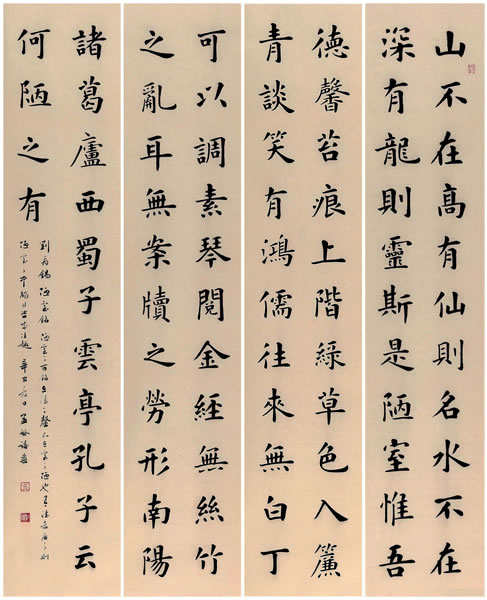 山不在高有仙則名水不在
深有龍則靈斯是陋室惟吾
德馨苔痕上階綠草色入簾
青談笑有鴻儒往來無白丁
可以調素琴閱金經無絲竹
之亂耳無案牘之勞形南陽
諸葛廬西蜀子雲亭孔子云
何陋之有
劉禹錫陋室銘